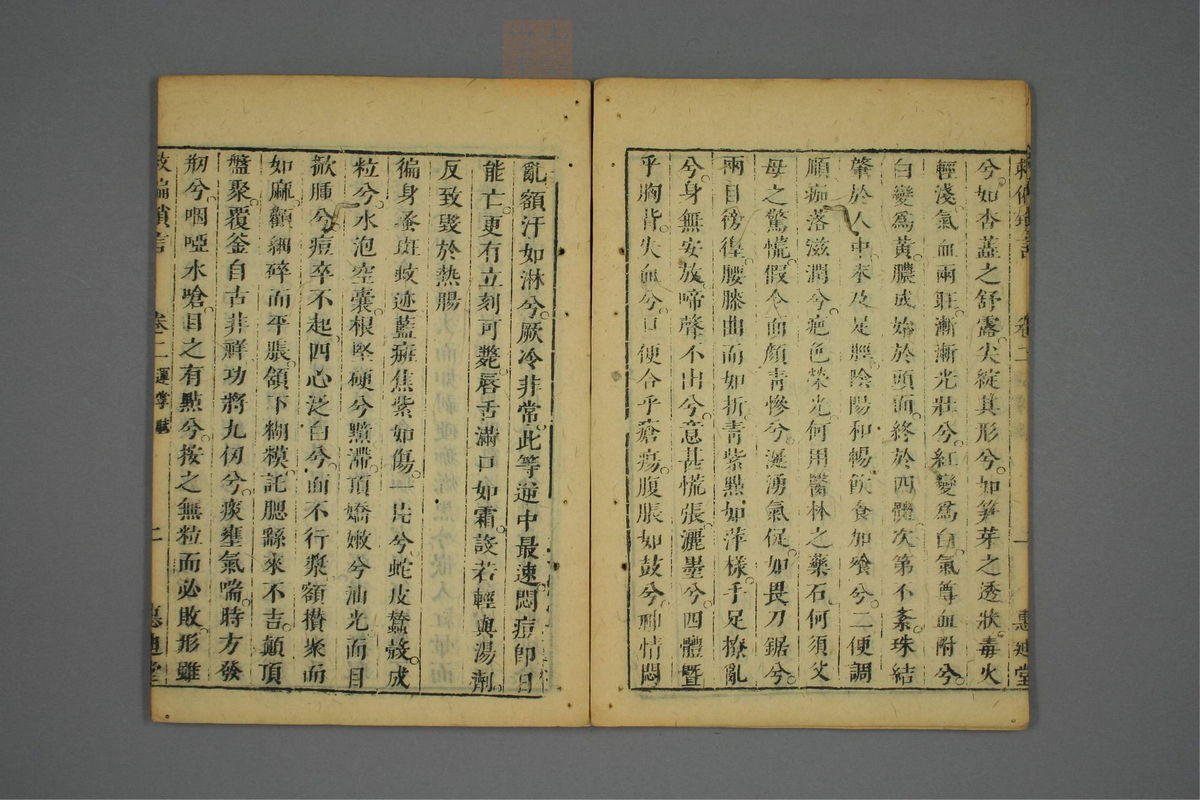 兮如杏蕋之舒露尖綻其形兮如笋芽之透狀毒火
輕淺氣血兩旺漸漸光壯兮紅變爲白氣尊血附兮
白變爲黃膿或始於頭面終於四體次第不紊珠結
肇於人中來及足脛陰陽和暢飲食如飱兮二便調
順痂落滋潤兮疤色榮光何用醫林之藥石何須父
母之驚慌假令面顏靑慘兮涎湧氣促如畏刀鋸兮
兩目徬徨腰膝曲而如折靑紫點如萍樣手足撩亂
兮身無安放啼聲不出兮意甚慌張灑墨兮四體暨
乎胸背失血兮口便合乎瘡瘍腹脹如鼓兮神情悶
卷二 一 惠迪堂
亂額汗如淋兮厥冷非常此等逆中最速悶痘卽日
能亡更有立刻可斃唇舌滿口如霜設若輕與湯劑
反致毀於熱腸
徧身蚤斑蚊迹藍癍焦紫如傷一片兮蛇皮蠶殼成
粒兮水泡空囊根堅硬兮黯滯頂嬌嫩兮油光面目
歘腫兮痘卒不起四心泛白兮面不行漿額攢聚而
如麻顴細碎而平脹頷下糊模託腮繇來不吉顚頂
盤聚覆釜自古非祥功將九仞兮痰壅氣喘時方發
剏兮咽啞水嗆目之有點兮按之無粒而必敗形雖
救偏瑣言 卷二 運掌賦 二 惠迪堂